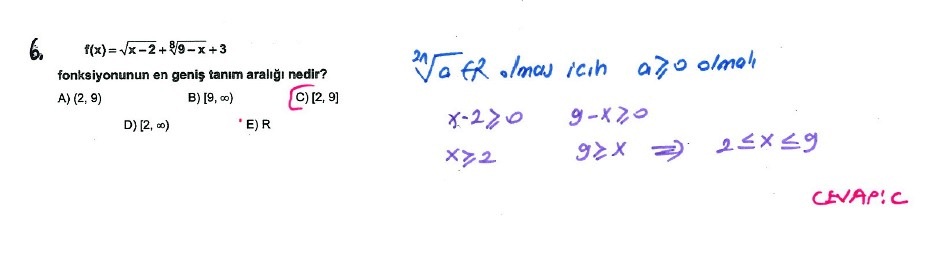 6. f(x) = √x−2 + ⁸√9−x + 3
fonksiyonunun en geniş tanım aralığı nedir?
A) (2, 9) B) [9, ∞) C) [2, 9]
D) [2, ∞) E) R
²ⁿ√a ∈R olması için a≥0 olmalı
x-2≥0 9-x≥0
x≥2 9≥x ⇒ 2≤x≤9
CEVAP: C